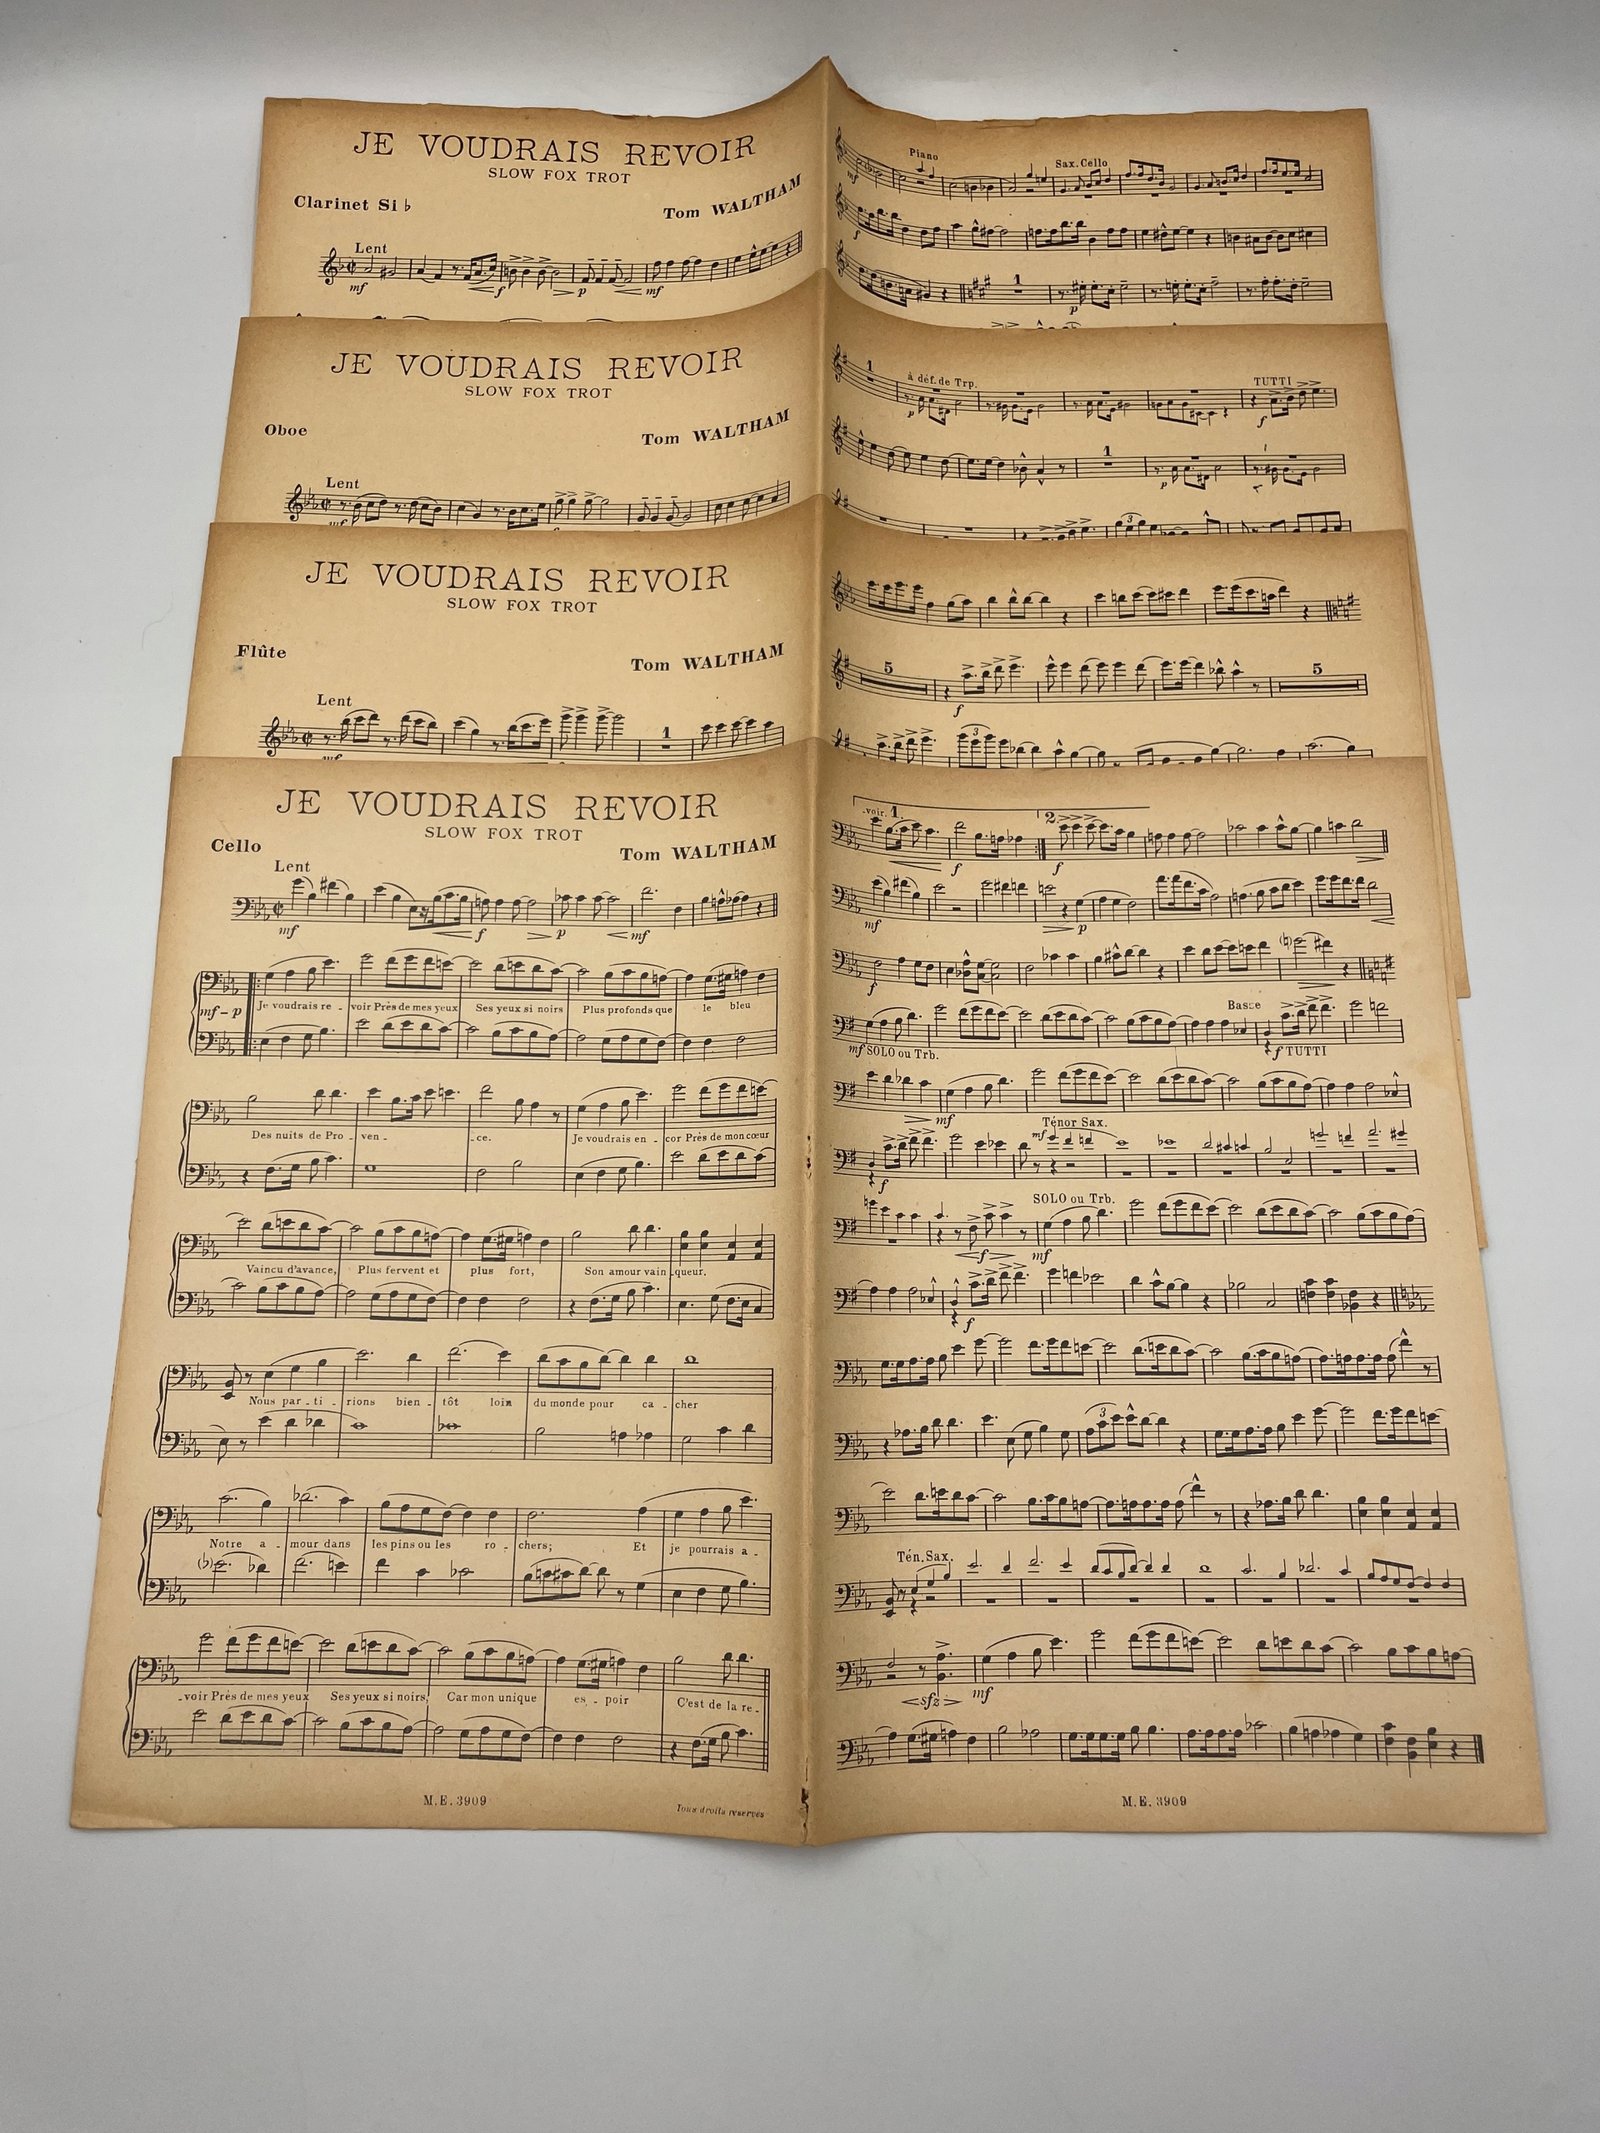 JE VOUDRAIS REVOIR
SLOW FOX TROT
Clarinet Si ♭
Tom WALTHAM
Lent
mf
f
p
mf
mf
Piano
Sax. Cello
f
1
p
JE VOUDRAIS REVOIR
SLOW FOX TROT
Oboe
Tom WALTHAM
Lent
mf
1
à déf. de Trp.
p
TUTTI
f
1
p
3
JE VOUDRAIS REVOIR
SLOW FOX TROT
Flûte
Tom WALTHAM
Lent
mf
1
5
f
5
3
JE VOUDRAIS REVOIR
SLOW FOX TROT
Cello
Tom WALTHAM
Lent
mf
f
p
mf
mf - p
Je voudrais re - voir Près de mes yeux Ses yeux si noirs Plus profonds que le bleu
Des nuits de Pro - ven - ce. Je voudrais en - cor Près de mon cœur
Vaincu d'avance, Plus fervent et plus fort, Son amour vain - queur.
Nous par - ti - rions bien - tôt loin du monde pour ca - cher
Notre a - mour dans les pins ou les ro - chers; Et je pourrais a -
- voir Près de mes yeux Ses yeux si noirs, Car mon unique es - poir C'est de la re -
M.E. 3909
Tous droits réservés
- voir. 1.
2.
f
f
mf
p
f
mf SOLO ou Trb.
Basse
f TUTTI
mf
Ténor Sax.
mf
f
SOLO ou Trb.
f
mf
f
3
Tén. Sax.
sfz
mf
M.E. 3909